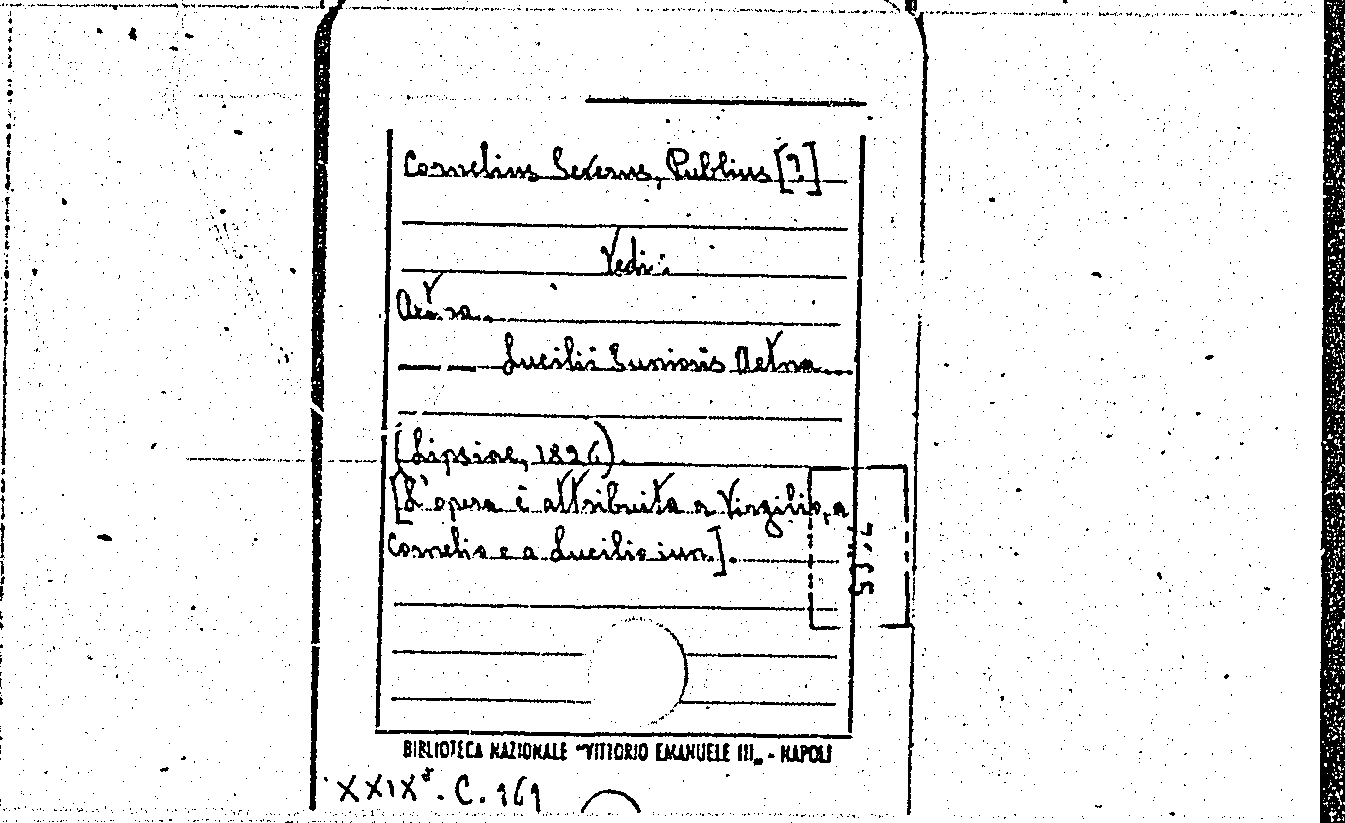 Cornelius Severus, Publius [?]
Vedi:
Aetna..
Lucilii Iunioris Aetna...
(Lipsiae, 1826).
[L'opera è attribuita a Virgilio, a
Cornelio e a Lucilio iun.].
BIBLIOTECA NAZIONALE "VITTORIO EMANUELE III„ - NAPOLI
XXIXª. C. 161